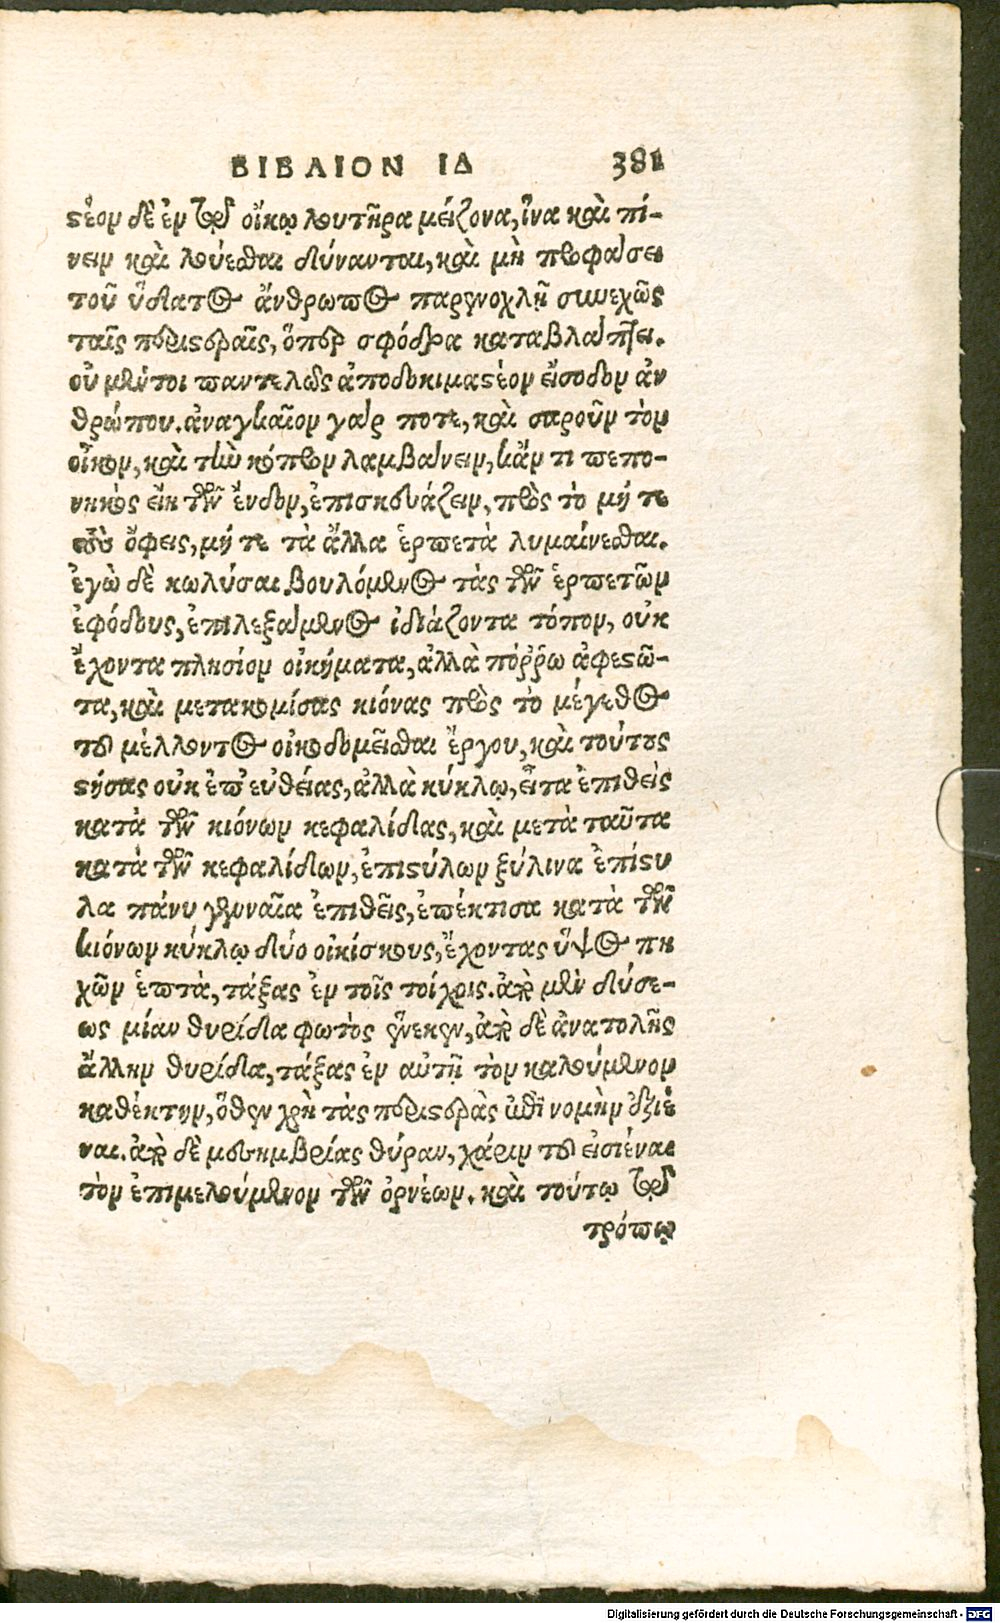 ΒΙΒΛΙΟΝ ΙΔ 381
στέον δὲ ἐν τῷ οἴκῳ λουτῆρα μείζονα, ἵνα καὶ πί-
νειν καὶ λούεσθαι δύνανται, καὶ μὴ προφάσει
τοῦ ὕδατος ἄνθρωπος παρενοχλῇ συνεχῶς
ταῖς περιστεραῖς, ὅπερ σφόδρα καταβλάπτει.
οὐ μέντοι παντελῶς ἀποδοκιμαστέον εἴσοδον ἀν
θρώπου. ἀναγκαῖον γάρ ποτε, καὶ σαροῦν τὸν
οἶκον, καὶ τὴν κόπρον λαμβάνειν, κἄν τι πεπο-
νηκὸς εἴη τῶν ἔνδον, ἐπισκευάζειν, πρὸς τὸ μή τε
τοὺς ὄφεις, μή τε τὰ ἄλλα ἑρπετὰ λυμαίνεσθαι.
ἐγὼ δὲ κωλύσαι βουλόμενος τὰς τῶν ἑρπετῶν
ἐφόδους, ἐπιλεξάμενος ἰδιάζοντα τόπον, οὐκ
ἔχοντα πλησίον οἰκήματα, ἀλλὰ πόῤῥω ἀφεστῶ-
τα, καὶ μετακομίσας κιόνας πρὸς τὸ μέγεθος
τοῦ μέλλοντος οἰκοδομεῖσθαι ἔργου, καὶ τούτους
στήσας οὐκ ἐπ' εὐθείας, ἀλλὰ κύκλῳ, εἶτα ἐπιθεὶς
κατὰ τῶν κιόνων κεφαλίδας, καὶ μετὰ ταῦτα
κατὰ τῶν κεφαλίδων, ἐπιστύλων ξύλινα ἐπίστυ
λα πάνυ γενναῖα ἐπιθεῖς, ἐπέκτισα κατὰ τῶν
κιόνων κύκλῳ δύο οἰκίσκους, ἔχοντας ὕψος πη
χῶν ἑπτὰ, τάξας ἐν τοῖς τοίχοις. ἀπὸ μὲν δύσε-
ως μίαν θυρίδα φωτὸς ἕνεκεν, ἀπὸ δὲ ἀνατολῆς
ἄλλην θυρίδα, τάξας ἐν αὐτῇ τὸν καλούμενον
καθέκτην, ὅθεν χρὴ τὰς περιστερὰς ἐπὶ νομὴν ἐξιέ
ναι. ἀπὸ δὲ μεσημβρίας θύραν, χάριν τοῦ εἰσιέναι
τὸν ἐπιμελούμενον τῶν ὀρνέων. καὶ τούτῳ τῷ
τρόπῳ
Digitalisierung gefördert durch die Deutsche Forschungsgemeinschaft - DFG